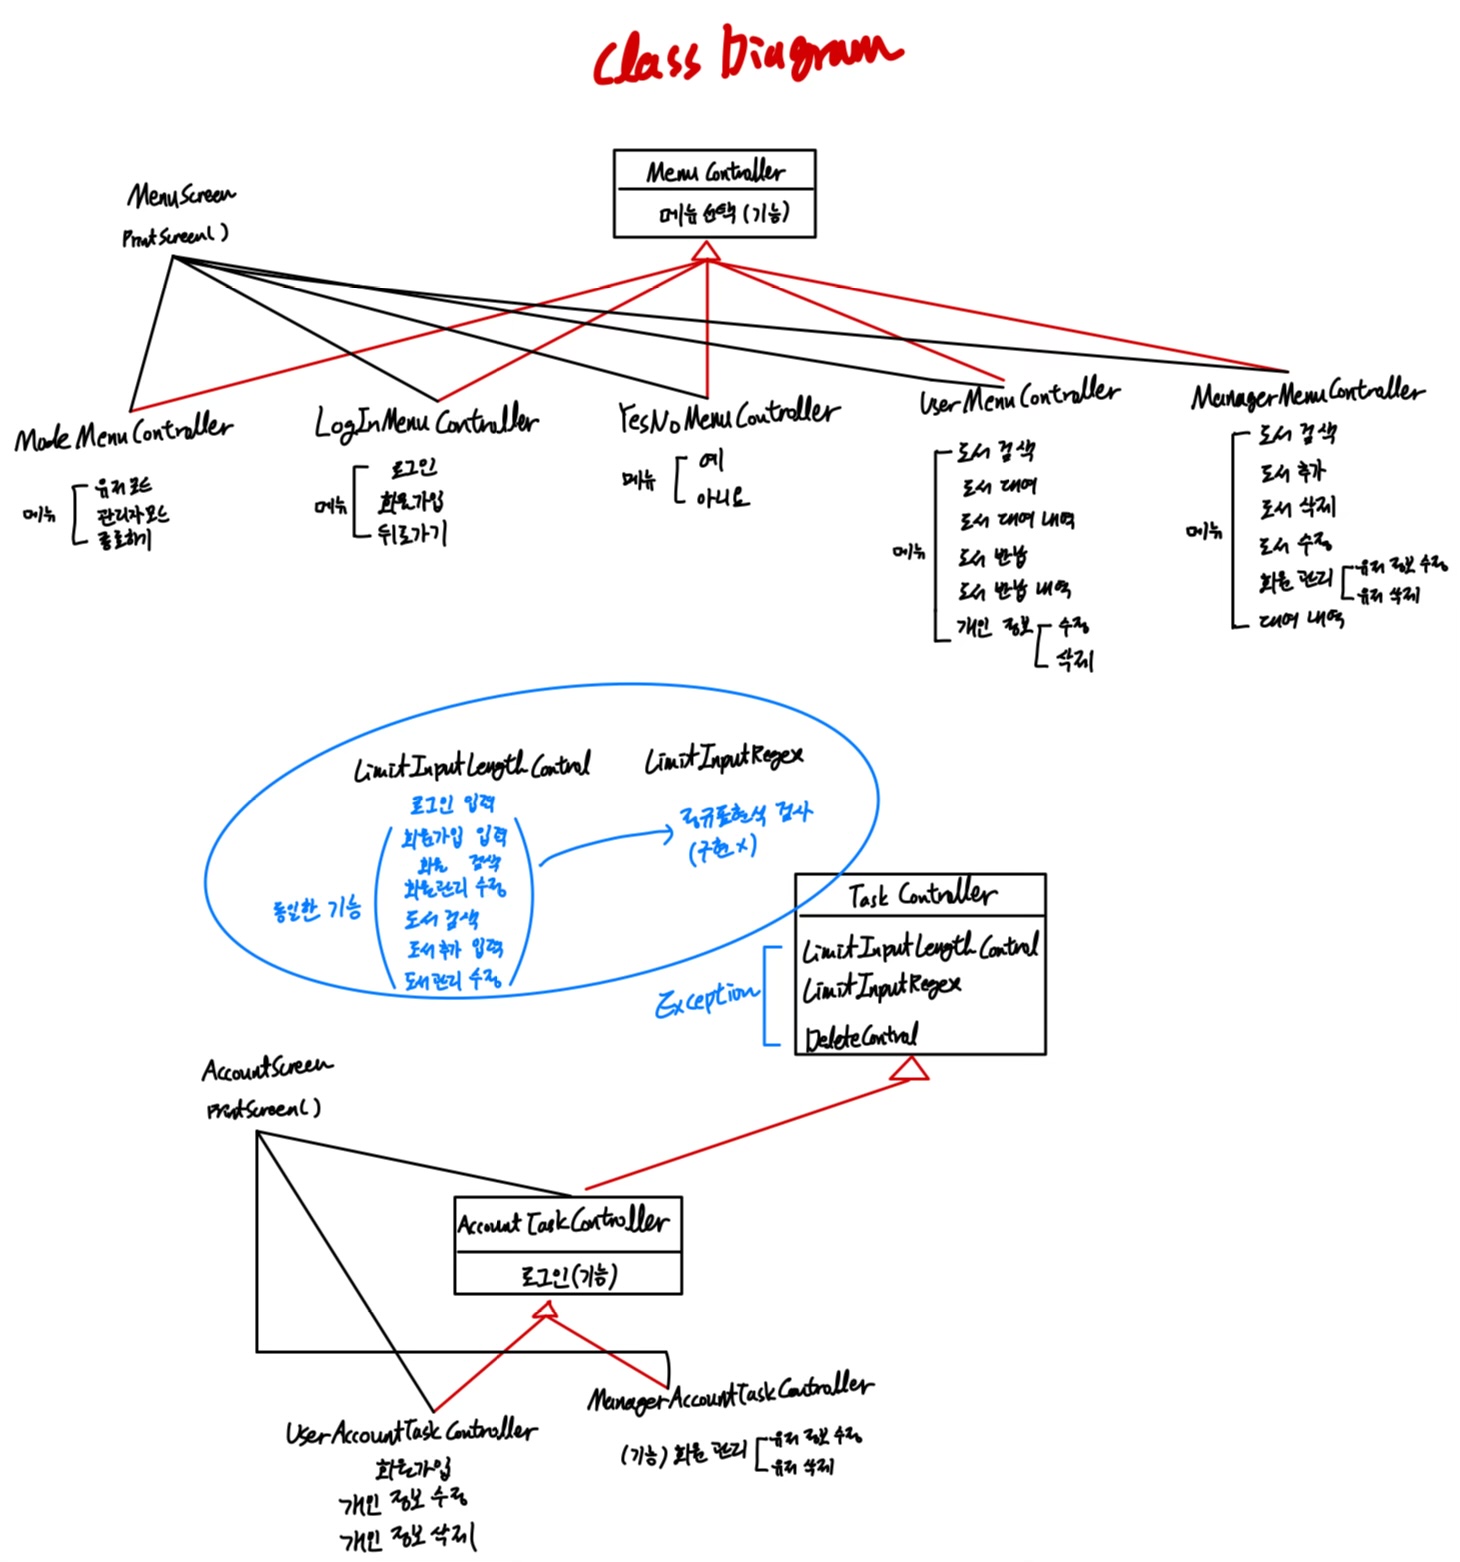 Class Diagram
MenuScreen
PrintScreen()
Menu Controller
메뉴 선택 (기능)
Mode Menu Controller
메뉴
유저모드
관리자모드
종료하기
LogInMenu Controller
메뉴
로그인
회원가입
뒤로가기
YesNoMenuController
메뉴
예
아니요
UserMenuController
메뉴
도서 검색
도서 대여
도서 대여 내역
도서 반납
도서 반납 내역
개인 정보
수정
삭제
ManagerMenuController
메뉴
도서 검색
도서 추가
도서 삭제
도서 수정
회원 관리
유저 정보 수정
유저 삭제
대여 내역
LimitInputLength Control
로그인 입력
동일한 기능
회원가입 입력
회원 검색
회원관리 수정
도서 검색
도서추가 입력
도서관리 수정
LimitInputRegex
정규표현식 검사
(구현 x)
Task Controller
LimitInputLength Control
LimitInputRegex
DeleteControl
Exception
AccountScreen
PrintScreen()
Account TaskController
로그인(기능)
UserAccountTaskController
회원가입
개인 정보 수정
개인 정보 삭제
ManagerAccountTaskController
(기능) 회원 관리
유저 정보 수정
유저 삭제